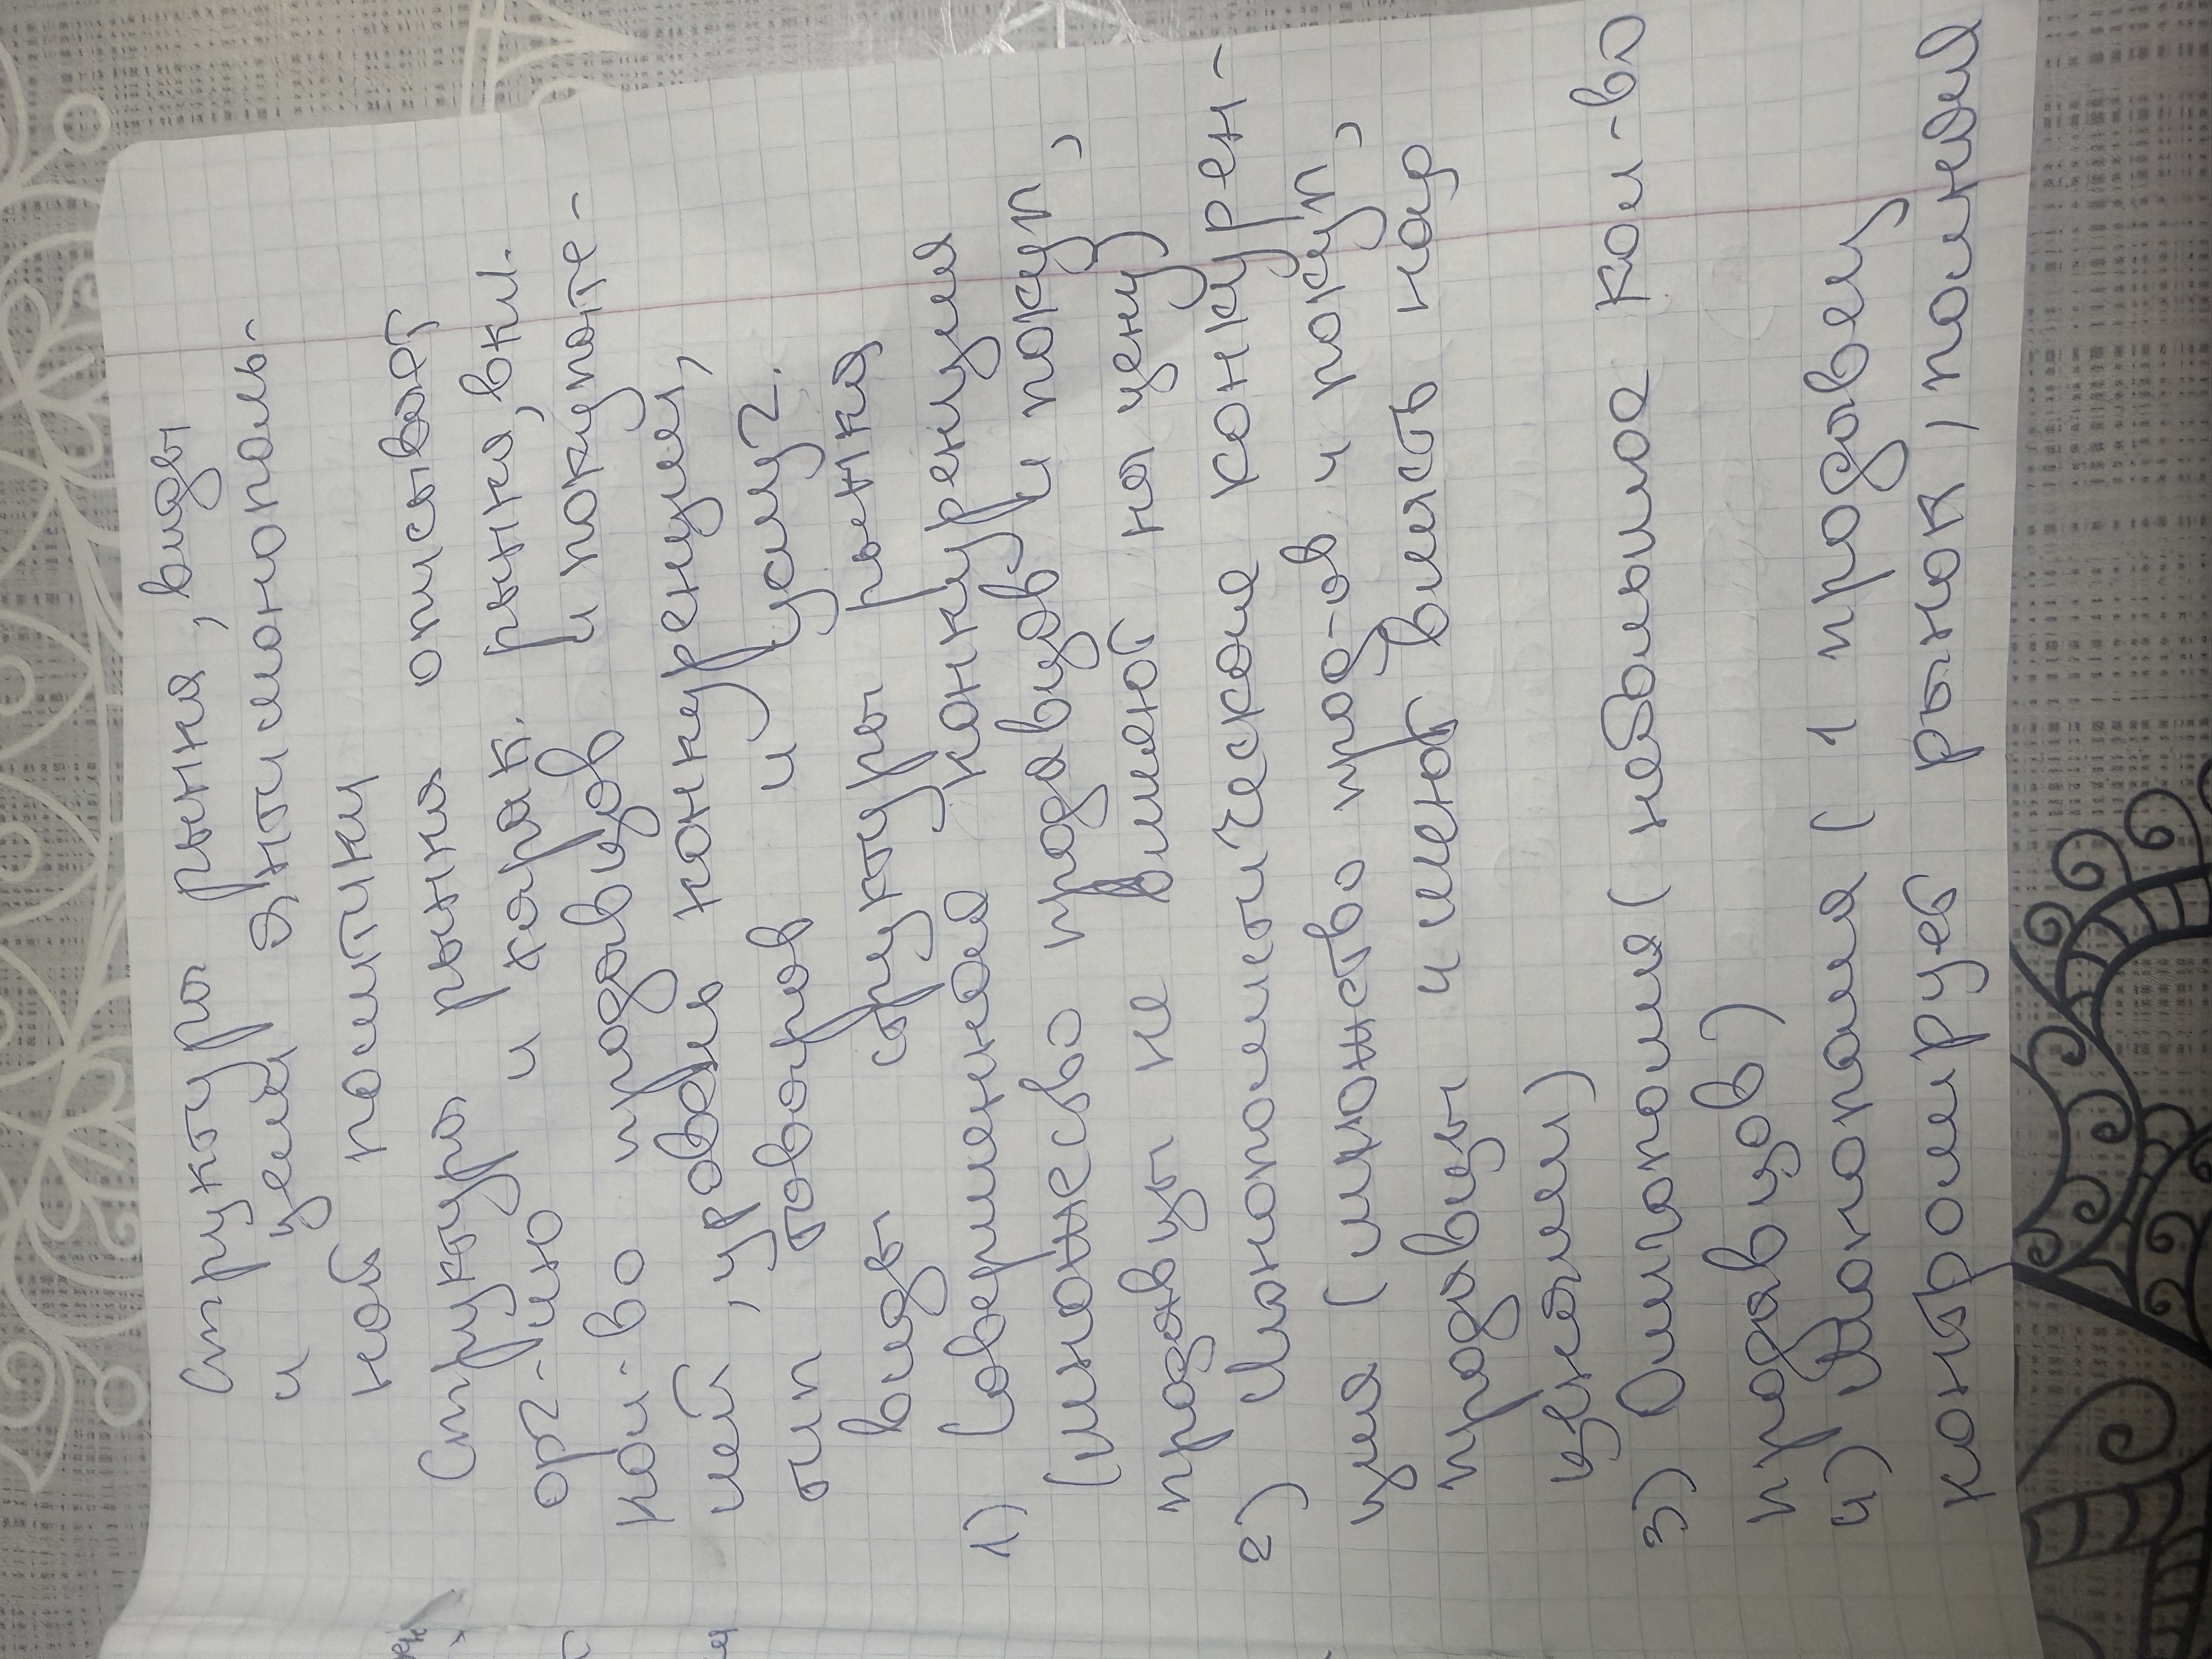 Структура рынка, виды
и цели антимонополь-
ной политики
Структура рынка описывает
орг-цию и харак. рынка, вкл.
кол-во продавцов и покупате-
лей, уровень конкуренции,
тип товаров и услуг.
Виды структуры рынка
1) Совершенная конкуренция
(множество продавцов и покуп,
продавцы не влияют на цену)
2) Монополистческая конкурен-
ция (множество прод-ов и покуп,
продавцы имеют власть над
ценами)
3) Олигополия (небольшое кол-во
продавцов)
4) Монополия (1 продавец
контролирует рынок, полная